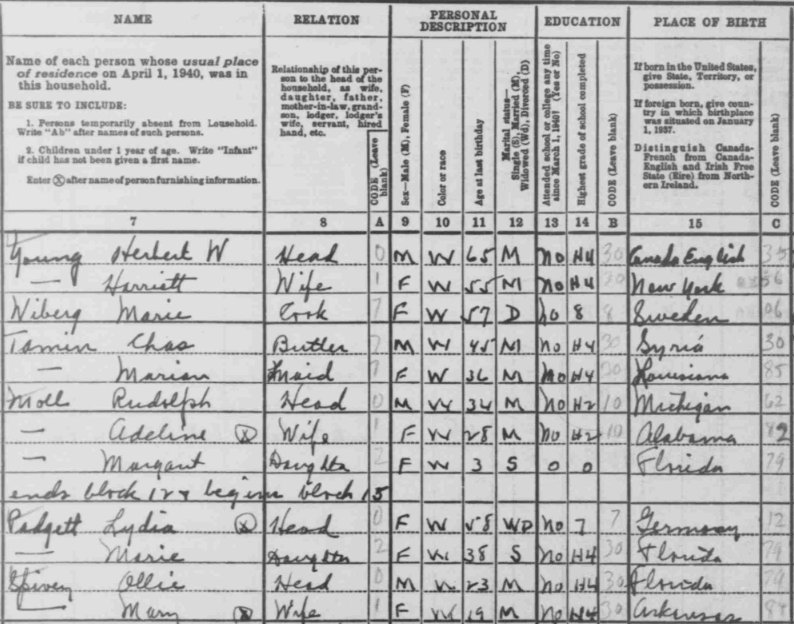 NAME RELATION PERSONAL DESCRIPTION EDUCATION PLACE OF BIRTH
Name of each person whose usual place of residence on April 1, 1940, was in this household.
BE SURE TO INCLUDE:
1. Persons temporarily absent from household. Write "Ab" after names of such persons.
2. Children under 1 year of age. Write "Infant" if child has not been given a first name.
Enter ⓧ after name of person furnishing information.
Relationship of this person to the head of the household, as wife, daughter, father, mother-in-law, grandson, lodger, lodger's wife, servant, hired hand, etc.
CODE (Leave blank)
Sex—Male (M), Female (F)
Color or race
Age at last birthday
Marital status—Single (S), Married (M), Widowed (Wd), Divorced (D)
Attended school or college any time since March 1, 1940? (Yes or No)
Highest grade of school completed
CODE (Leave blank)
If born in the United States, give State, Territory, or possession.
If foreign born, give country in which birthplace was situated on January 1, 1937.
Distinguish Canada-French from Canada-English and Irish Free State (Eire) from Northern Ireland.
CODE (Leave blank)
7 8 A 9 10 11 12 13 14 B 15 C
Young Herbert W Head 0 M W 65 M No H4 30 Canada English
— Harriett Wife 1 F W 55 M No H4 30 New York 56
Wiberg Marie Cook 7 F W 57 D No 8 8 Sweden 06
Tamin Chas Butler 7 M W 45 M No H4 30 Syria 30
— Marian Maid 7 F W 36 M No H4 30 Louisiana 85
Moll Rudolph Head 0 M W 34 M No H2 10 Michigan 62
— Adeline ⓧ Wife 1 F W 28 M No H2 10 Alabama 82
— Margaret Daughter 2 F W 3 S 0 0 Florida 79
ends block 124 begins block 15
Padgett Lydia ⓧ Head 0 F W 58 WD No 7 7 Germany 12
— Marie Daughter 2 F W 38 S No H4 30 Florida 79
Spivey Ollie Head 0 M W 23 M No H4 30 Florida 79
— Mary ⓧ Wife 1 F W 19 M No H4 30 Arkansas 84